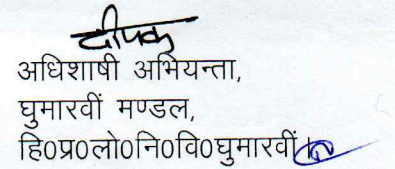 दीपक
अधिशाषी अभियन्ता,
घुमारवीं मण्डल,
हि0प्र0लो0नि0वि0घुमारवीं।